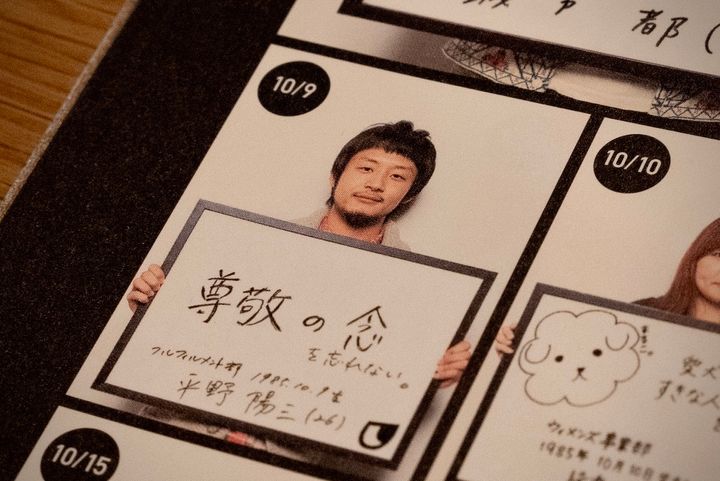 都(
10/9
尊敬の念
を忘れない。
フルフィルメント部 1985.10.9生
平野陽三(26)
10/10
愛犬
すきな人
ウィメンズ事業部
1985年10月10日
10/15